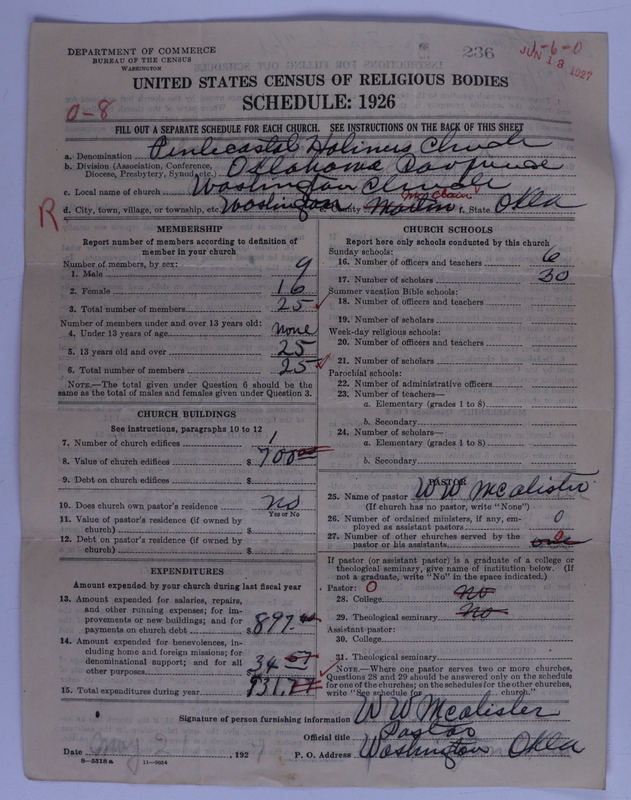 DEPARTMENT OF COMMERCE
BUREAU OF THE CENSUS
WASHINGTON
236
1-6-0
JUN 13 1927
UNITED STATES CENSUS OF RELIGIOUS BODIES
SCHEDULE: 1926
0-8
FILL OUT A SEPARATE SCHEDULE FOR EACH CHURCH. SEE INSTRUCTIONS ON THE BACK OF THIS SHEET
a. Denomination Pentecostal Holiness Church
b. Division (Association, Conference, Diocese, Presbytery, Synod, etc.) Oklahoma
c. Local name of church Washington Church
d. City, town, village, or township, etc. Washington e. County McClain f. State Okla
R
MEMBERSHIP
Report number of members according to definition of
member in your church
Number of members, by sex:
1. Male 9
2. Female 16
3. Total number of members 25
Number of members under and over 13 years old:
4. Under 13 years of age none
5. 13 years old and over 25
6. Total number of members 25
NOTE.—The total given under Question 6 should be the
same as the total of males and females given under Question 3.
CHURCH BUILDINGS
See instructions, paragraphs 10 to 12
7. Number of church edifices 1
8. Value of church edifices $ 700
9. Debt on church edifices $
10. Does church own pastor's residence no
Yes or No
11. Value of pastor's residence (if owned by
church) $
12. Debt on pastor's residence (if owned by
church) $
EXPENDITURES
Amount expended by your church during last fiscal year
13. Amount expended for salaries, repairs,
and other running expenses; for im-
provements or new buildings; and for
payments on church debt $ 897.
14. Amount expended for benevolences, in-
cluding home and foreign missions; for
denominational support; and for all
other purposes 34
15. Total expenditures during year 931.
CHURCH SCHOOLS
Report here only schools conducted by this church
Sunday schools:
16. Number of officers and teachers 6
17. Number of scholars 30
Summer vacation Bible schools:
18. Number of officers and teachers
19. Number of scholars
Week-day religious schools:
20. Number of officers and teachers
21. Number of scholars
Parochial schools:
22. Number of administrative officers
23. Number of teachers—
a. Elementary (grades 1 to 8)
b. Secondary
24. Number of scholars—
a. Elementary (grades 1 to 8)
b. Secondary
PASTOR
25. Name of pastor W W McAlister
(If church has no pastor, write "None")
26. Number of ordained ministers, if any, em-
ployed as assistant pastors 0
27. Number of other churches served by the
pastor or his assistants one 0
If pastor (or assistant pastor) is a graduate of a college or
theological seminary, give name of institution below. (If
not a graduate, write "No" in the space indicated.)
Pastor: 0
28. College No
29. Theological seminary No
Assistant pastor:
30. College
31. Theological seminary
NOTE.—Where one pastor serves two or more churches,
Questions 28 and 29 should be answered only on the schedule
for one of the churches; on the schedules for the other churches,
write "See schedule for church."
Signature of person furnishing information W W McAlister
Official title Pastor
Date May 2 , 192 P. O. Address Washington Okla
8-5518a 11-9054